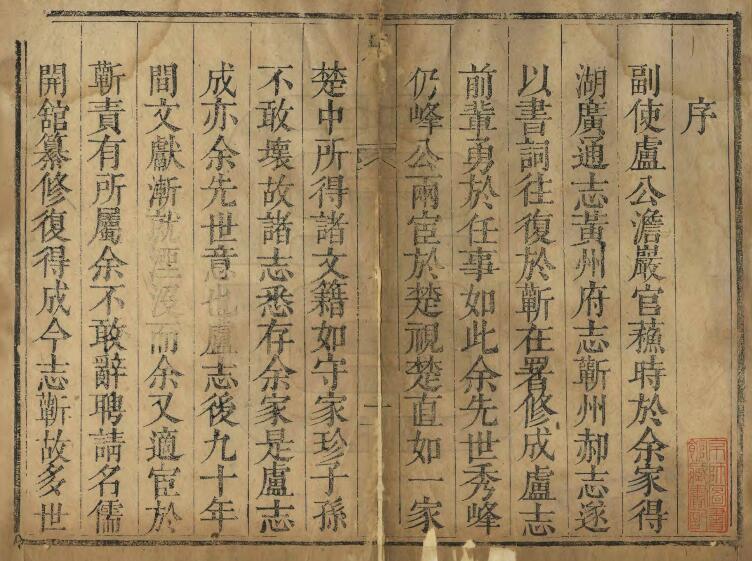 序
副使盧公澹巖官蘓時於余家得
湖廣通志黃州府志蘄州郝志遂
以書詞往復於蘄在署修成盧志
前輩勇於任事如此余先世秀峰
仍峰公兩宦於楚視楚直如一家
楚中所得諸文籍如守家珍子孫
不敢壞故諸志悉存余家是盧志
成亦余先世意也盧志後九十年
間文獻漸就湮沒而余又適宦於
蘄責有所屬余不敢辭聘請名儒
開舘纂修復得成今志蘄故多世